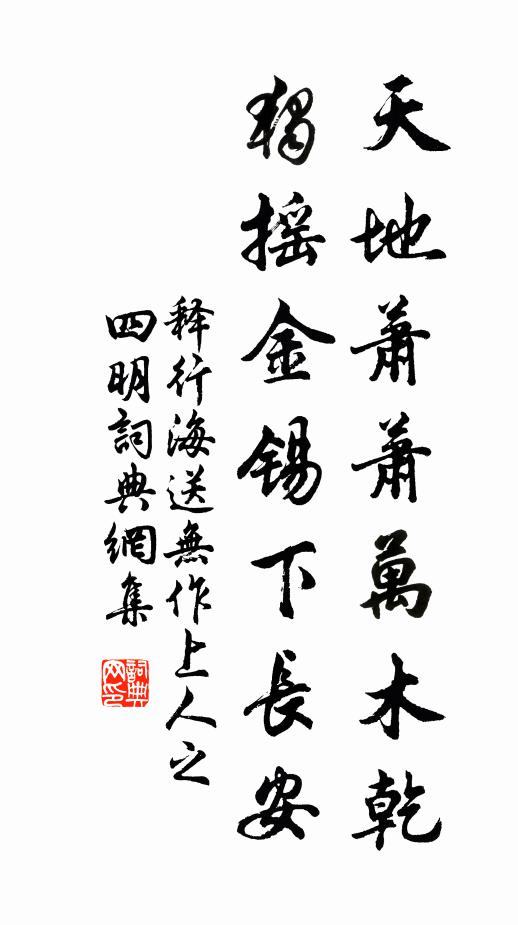 天地蕭蕭萬木乾
獨摇金锡下長安
释行海送無作上人之
四明詞典網集
詞典网印